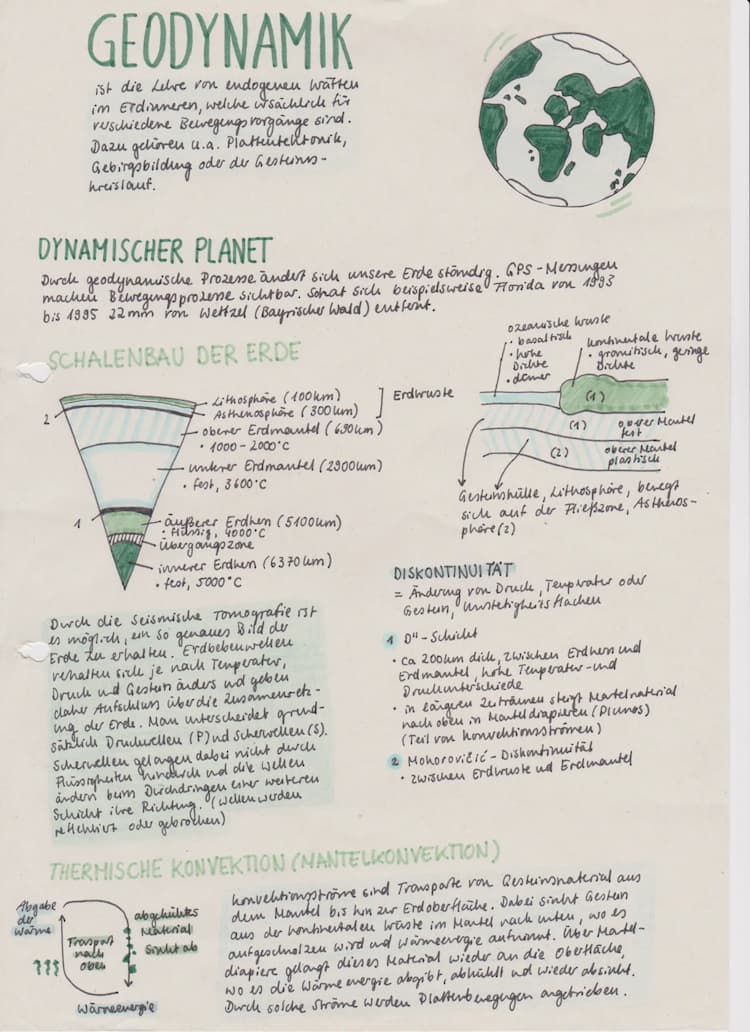 GEODYNAMIK
ist die Lehre von endogenen Kräften
im Erdinneren, welche ursächlich für
verschiedene Bewegungsvorgänge sind.
Dazu gehören u.a. Plattentektonik,
Gebirgsbildung oder der Gesteins-
kreislauf.
DYNAMISCHER PLANET
Durch geodynamische Prozesse ändert sich unsere Erde ständig. GPS-Messungen
machen Bewegungsprozesse sichtbar. So hat sich beispielsweise Florida von 1993
bis 1995 22mm von Wettzel (Bayrischer Wald) entfernt.
SCHALENBAU DER ERDE
2
Lithosphäre (100km)
Asthenosphäre (300km)
Erdkruste
oberer Erdmantel (690km)
• 1000-2000°C
unterer Erdmantel (2900km)
• fest, 3600°C
1
äußerer Erdkern (5100km)
• flüssig, 4000°C
Übergangszone
innerer Erdkern (6370km)
• fest, 5000°C
ozeanische Kruste
• basaltisch
• hohe
Dichte
• dünner
kontinentale Kruste
• granitisch, geringe
Dichte
(1)
(1)
oberer Mantel
fest
(2)
oberer Mantel
plastisch
Gesteinshülle, Lithosphäre, bewegt
sich auf der Fließzone, Asthenos-
phäre (2)
Durch die seismische Tomografie ist
es möglich, ein so genaues Bild der
Erde zu erhalten. Erdbebenwellen
verhalten sich je nach Temperatur,
Druck und Gestein anders und geben
daher Aufschluss über die Zusammensetz-
ung der Erde. Man unterscheidet grund-
sätzlich Druckwellen (P) und Scherwellen (S).
Scherwellen gelangen dabei nicht durch
Flüssigkeiten hindurch und die Wellen
ändern beim Durchdringen einer weiteren
Schicht ihre Richtung. (Wellen werden
reflektiert oder gebrochen)
DISKONTINUITÄT
= Änderung von Druck, Temperatur oder
Gestein, Unstetigkeitsflächen
1 D"-Schicht
• ca 200km dick, zwischen Erdkern und
Erdmantel, hohe Temperatur- und
Druckunterschiede
• in längeren Zeiträumen steigt Mantelmaterial
nach oben in Manteldiapiren (Plumes)
(Teil von Konvektionsströmen)
2 Mohorovičić-Diskontinuität
• zwischen Erdkruste und Erdmantel
THERMISCHE KONVEKTION (MANTELKONVEKTION)
Abgabe
der
Wärme
Transport
nach
oben
abgekühltes
Material
sinkt ab
Wärmeenergie
Konvektionsströme sind Transporte von Gesteinsmaterial aus
dem Mantel bis hin zur Erdoberfläche. Dabei sinkt Gestein
aus der kontinentalen Kruste im Mantel nach unten, wo es
aufgeschmolzen wird und Wärmeenergie aufnimmt. Über Mantel-
diapire gelangt dieses Material wieder an die Oberfläche,
wo es die Wärmeenergie abgibt, abkühlt und wieder absinkt.
Durch solche Ströme werden Plattenbewegungen angetrieben.